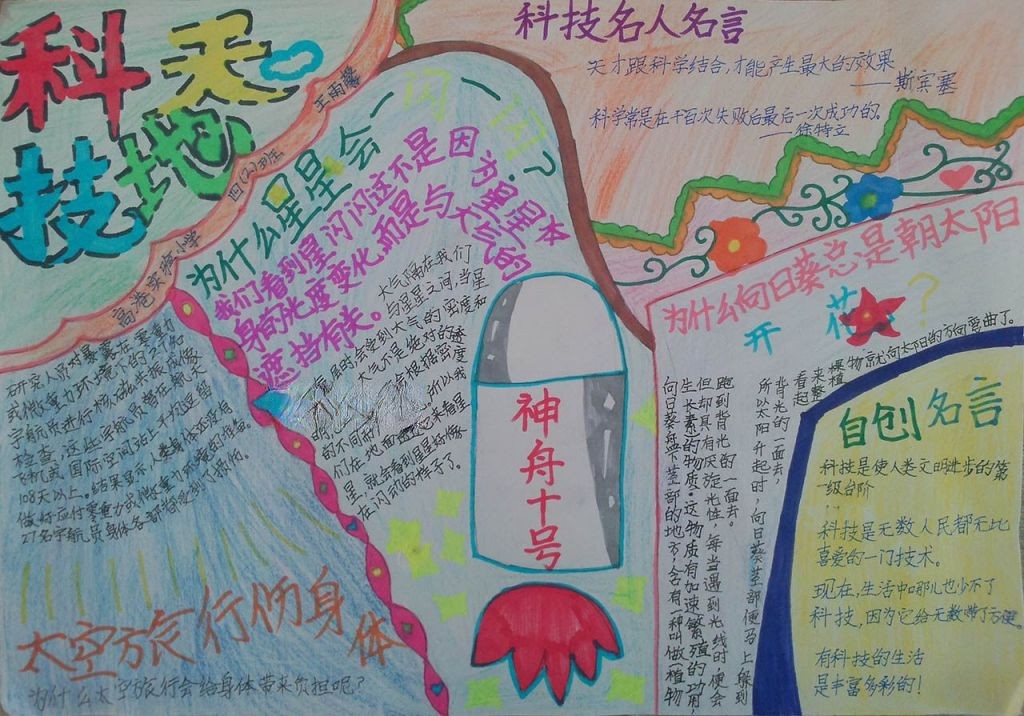 科天
技地
高港实验小学
四(2)班
王雨馨
科技名人名言
天才跟科学结合,才能产生最大的效果
——斯宾塞
科学常是在千百次失败后最后一次成功的。
——徐特立
为什么星星会一闪一闪?
我们看到星闪闪,这不是因为星星本
身的光度变化,而是与大气的
遮挡有关。
大气隔在我们
与星星之间,当星
大气不是绝对的透
们在地面
星,就会看到星星好像
在闪动的样子了。
神舟十号
研究人员对暴露在零重力
或微重力环境下的27名
宇航员进行核磁共振成像
检查,这些宇航员曾在航天
飞机或国际空间站上平均逗留
108天以上。结果显示,人类身体还没有
做好应付零重力或微重力环境的准备。
27名宇航员身体各部都受到了损伤。
太空旅行伤身体
为什么太空旅行会给身体带来负担呢?
为什么向日葵总是朝太阳
开花?
向日葵盘下茎部的地方,含有一种叫做“植物
生长素”的物质。这物质有加速繁殖的功用,
但却具有厌旋光性,每当遇到光线时,便会
跑到背光的一面去。
所以太阳升起时,向日葵茎部便马上躲到
背光的一面去,
看起
来整
棵植
物就向太阳的方向弯曲了。
自创名言
科技是使人类文明进步的第
一级台阶
科技是无数人民都无比
喜爱的一门技术。
现在,生活中哪儿也少不了
科技,因为它给无数带了方便。
有科技的生活
是丰富多彩的!